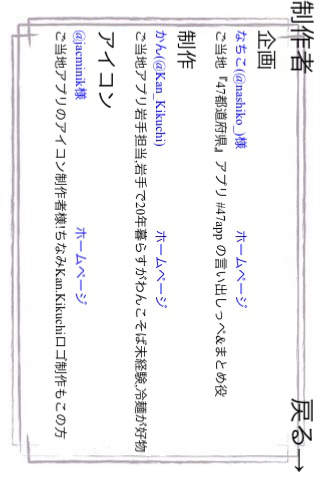 制作者
戻る→
企画
なちこ(@nashiko_)様 ホームページ
ご当地『47都道府県』アプリ #47app の言い出しっぺ&まとめ役
制作
かん(@Kan_Kikuchi) ホームページ
ご当地アプリ岩手担当,岩手で20年暮らすがわんこそば未経験,冷麺が好物
アイコン
@jacminik様 ホームページ
ご当地アプリのアイコン制作者様!ちなみKan.Kikuchiロゴ制作もこの方